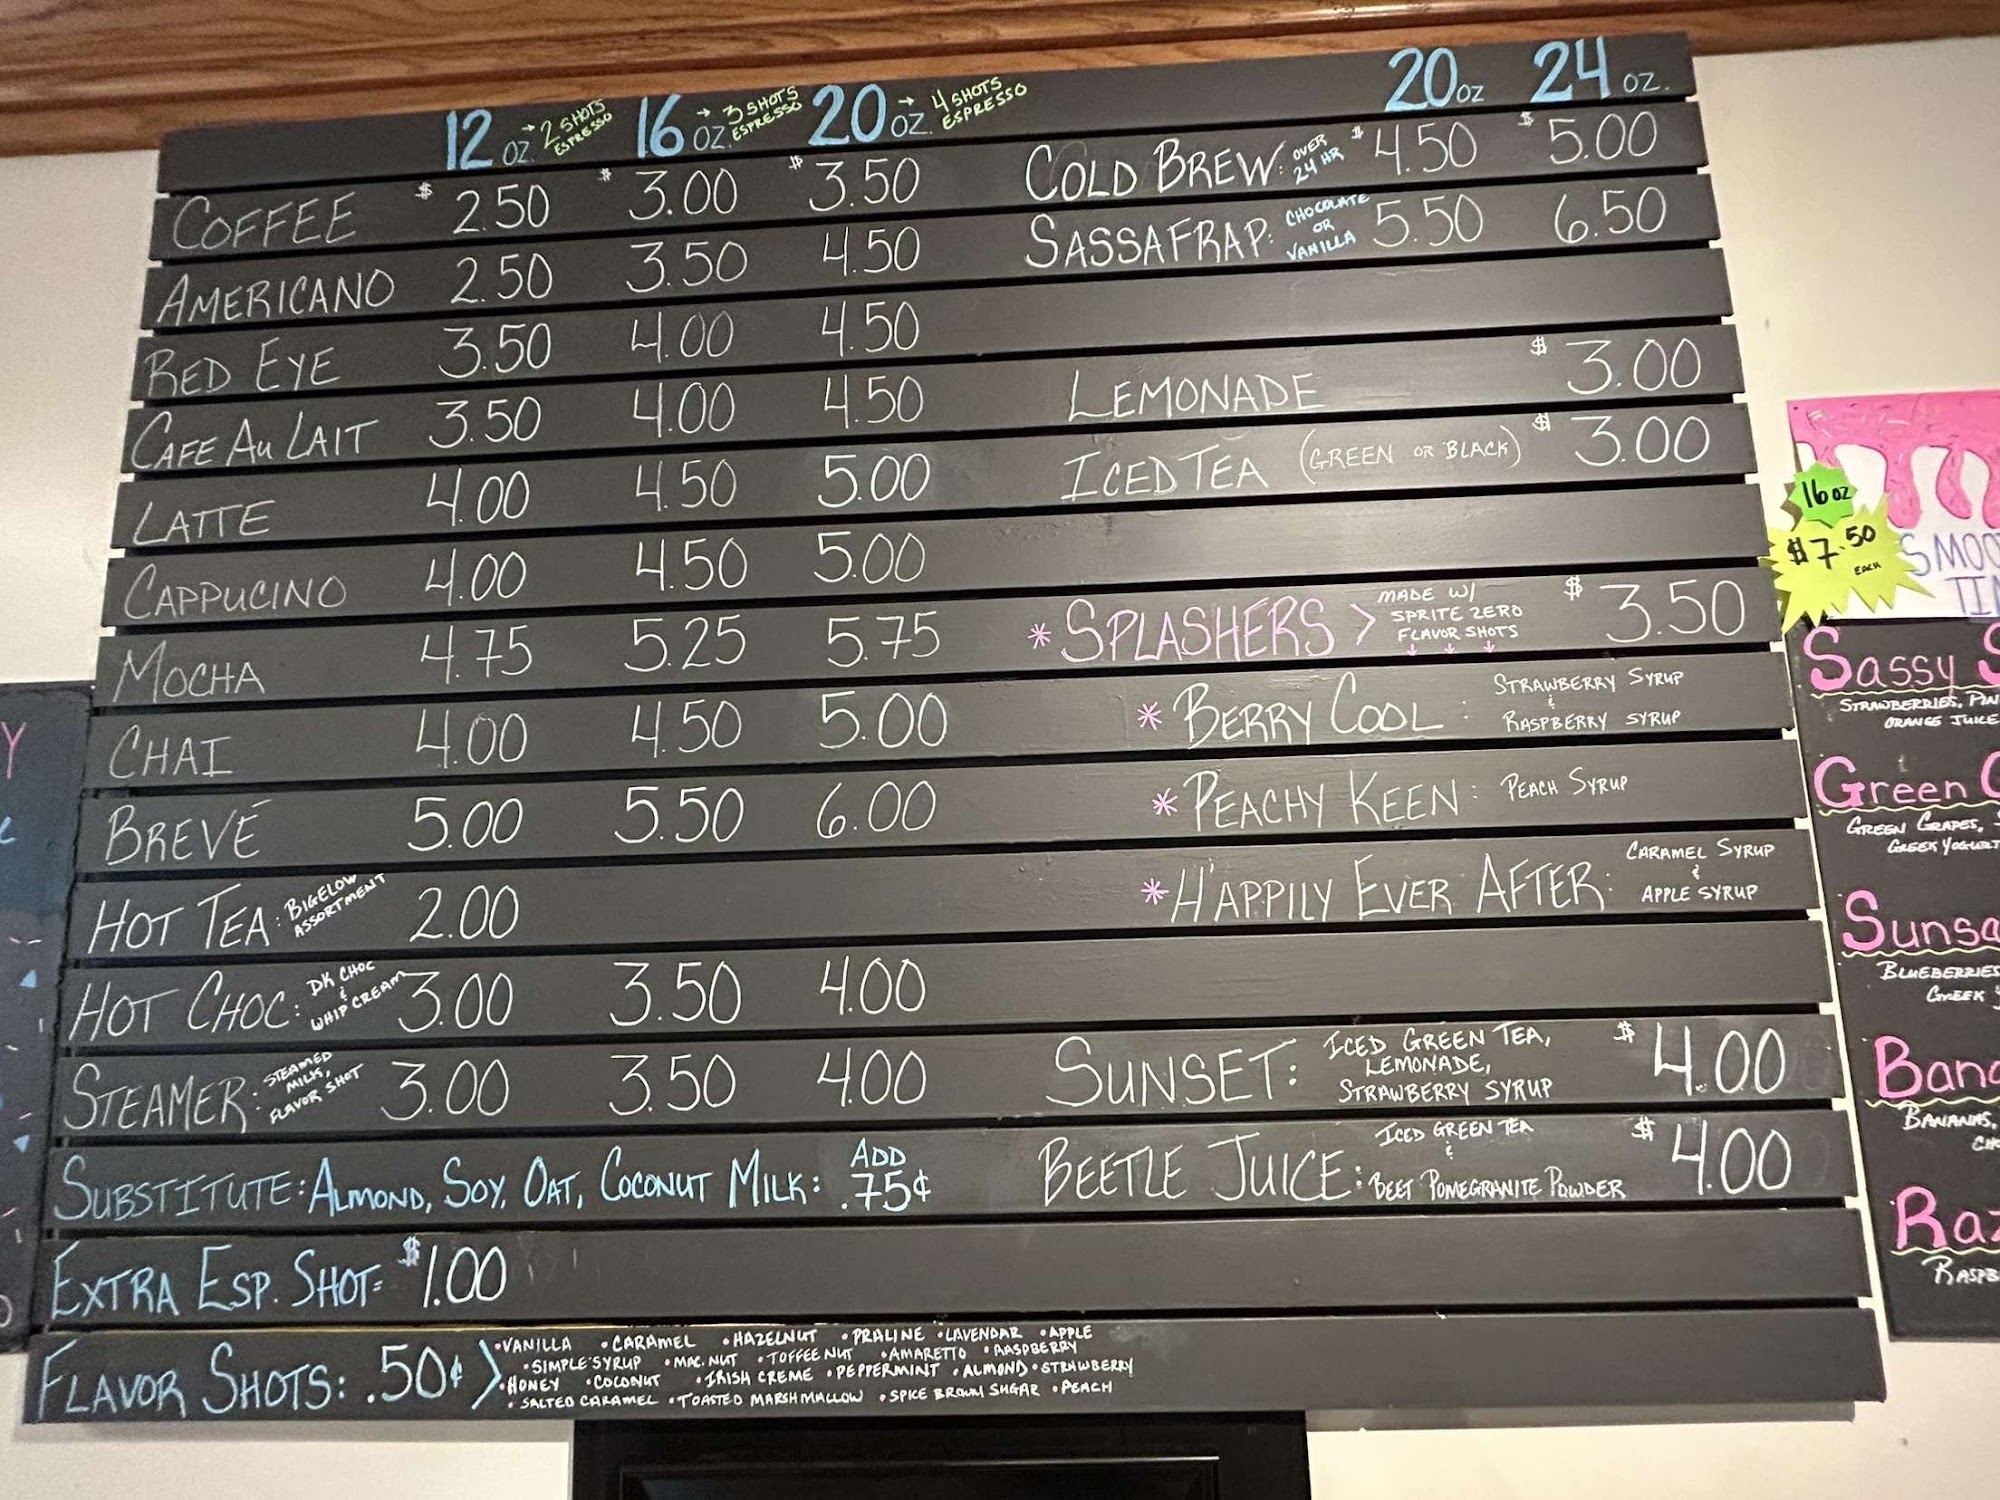 12 OZ. → 2 SHOTS ESPRESSO 16 OZ. → 3 SHOTS ESPRESSO 20 OZ. → 4 SHOTS ESPRESSO
COFFEE $2.50 $3.00 $3.50
AMERICANO 2.50 3.50 4.50
RED EYE 3.50 4.00 4.50
CAFE AU LAIT 3.50 4.00 4.50
LATTE 4.00 4.50 5.00
CAPPUCINO 4.00 4.50 5.00
MOCHA 4.75 5.25 5.75
CHAI 4.00 4.50 5.00
BREVÉ 5.00 5.50 6.00
HOT TEA: BIGELOW ASSORTMENT 2.00
HOT CHOC: DK CHOC & WHIP CREAM 3.00 3.50 4.00
STEAMER: STEAMED MILK, FLAVOR SHOT 3.00 3.50 4.00
SUBSTITUTE: ALMOND, SOY, OAT, COCONUT MILK: ADD .75¢
EXTRA ESP. SHOT= $1.00
FLAVOR SHOTS: .50¢ >
• VANILLA • CARAMEL • HAZELNUT • PRALINE • LAVENDAR • APPLE
• SIMPLE SYRUP • MAC. NUT • TOFFEE NUT • AMARETTO • RASPBERRY
• HONEY • COCONUT • IRISH CREME • PEPPERMINT • ALMOND • STRAWBERRY
• SALTED CARAMEL • TOASTED MARSHMALLOW • SPICE BROWN SUGAR • PEACH
20 OZ 24 OZ.
COLD BREW: OVER 24 HR $4.50 $5.00
SASSAFRAP: CHOCOLATE OR VANILLA 5.50 6.50
LEMONADE $3.00
ICED TEA (GREEN OR BLACK) $3.00
* SPLASHERS > MADE W/ SPRITE ZERO FLAVOR SHOTS $3.50
* BERRY COOL: STRAWBERRY SYRUP & RASPBERRY SYRUP
* PEACHY KEEN: PEACH SYRUP
* HAPPILY EVER AFTER: CARAMEL SYRUP & APPLE SYRUP
SUNSET: ICED GREEN TEA, LEMONADE, STRAWBERRY SYRUP $4.00
BEETLE JUICE: ICED GREEN TEA & BEET POMEGRANITE POWDER $4.00
16 oz
$7.50 EACH
SMOO
TI
Sassy S
STRAWBERRIES, PIN
ORANGE JUICE
Green
GREEN GRAPES,
GREEK YOGURT
Sunsa
BLUEBERRIES
GREEK
Bana
BANANAS,
CHO
Raz
RASPB